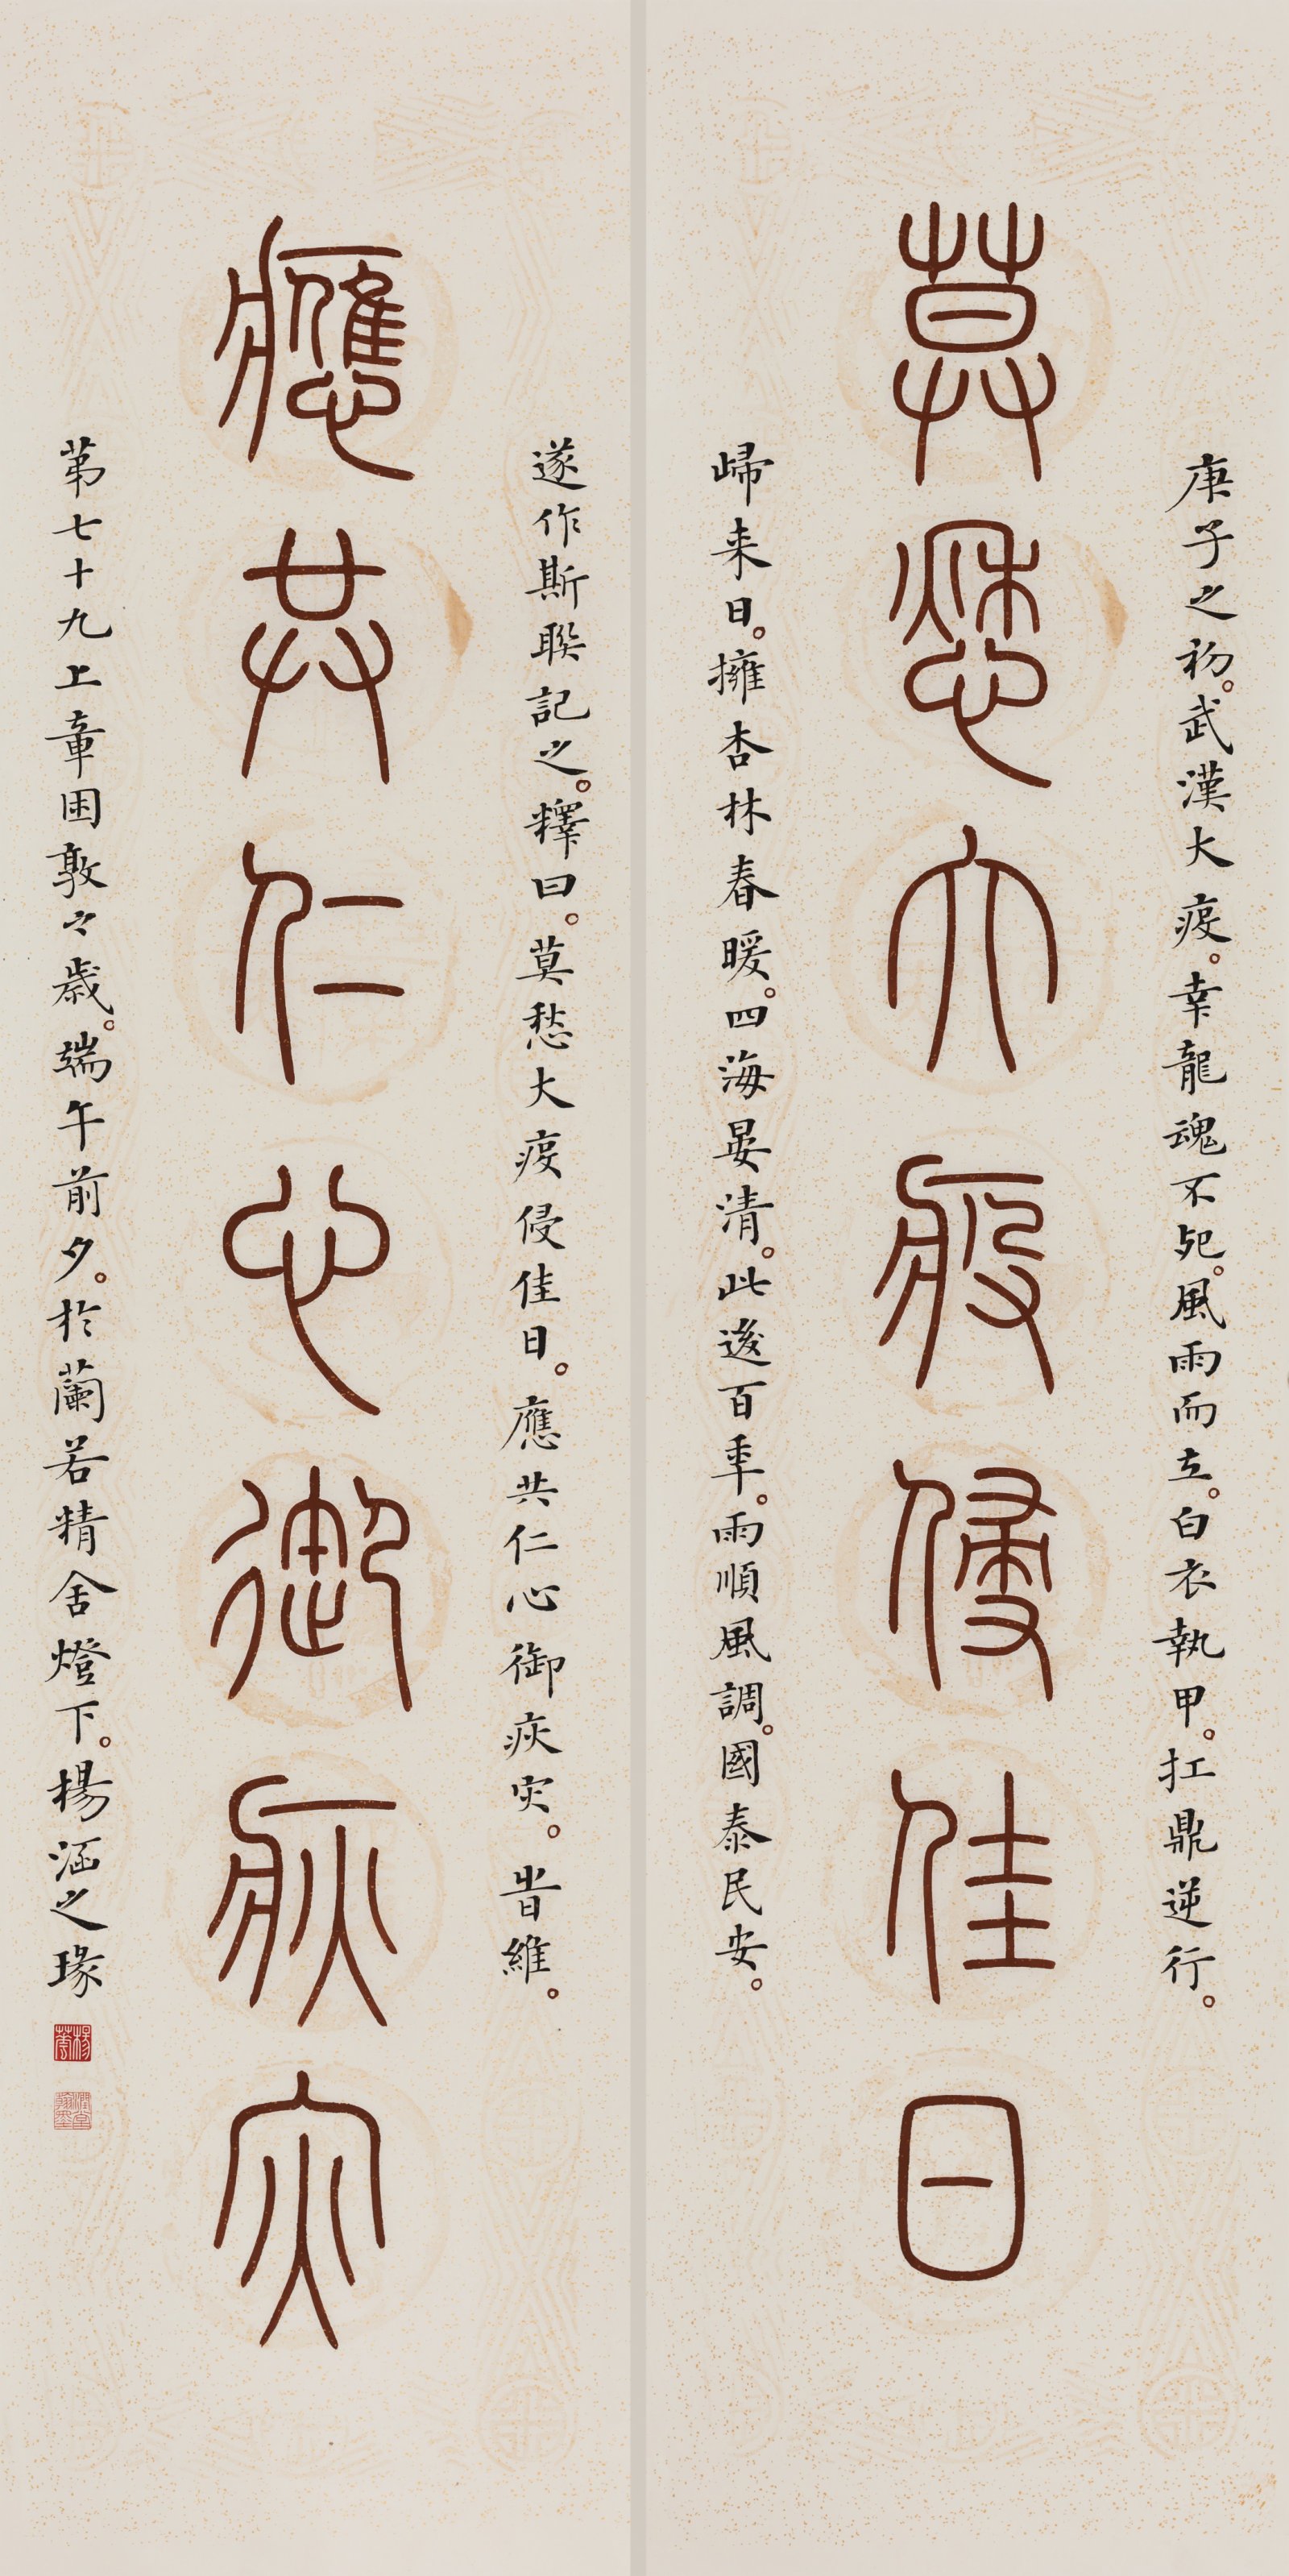 庚子之初。武漢大疫。幸龍魂不死。風雨而立。白衣執甲。扛鼎逆行。
莫愁大疫侵佳日
歸來日。擁杏林春暖。四海晏清。此後百年。雨順風調。國泰民安。
遂作斯聯記之。釋曰。莫愁大疫侵佳日。應共仁心御疢灾。旹維。
應共仁心御疢灾
第七十九上章困敦々歲。端午前夕。於蘭若精舍燈下。楊涵之瑑